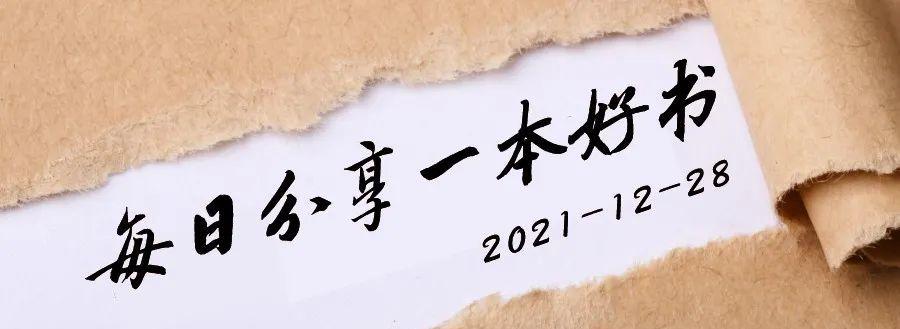 每日分享一本好书
2021-12-28